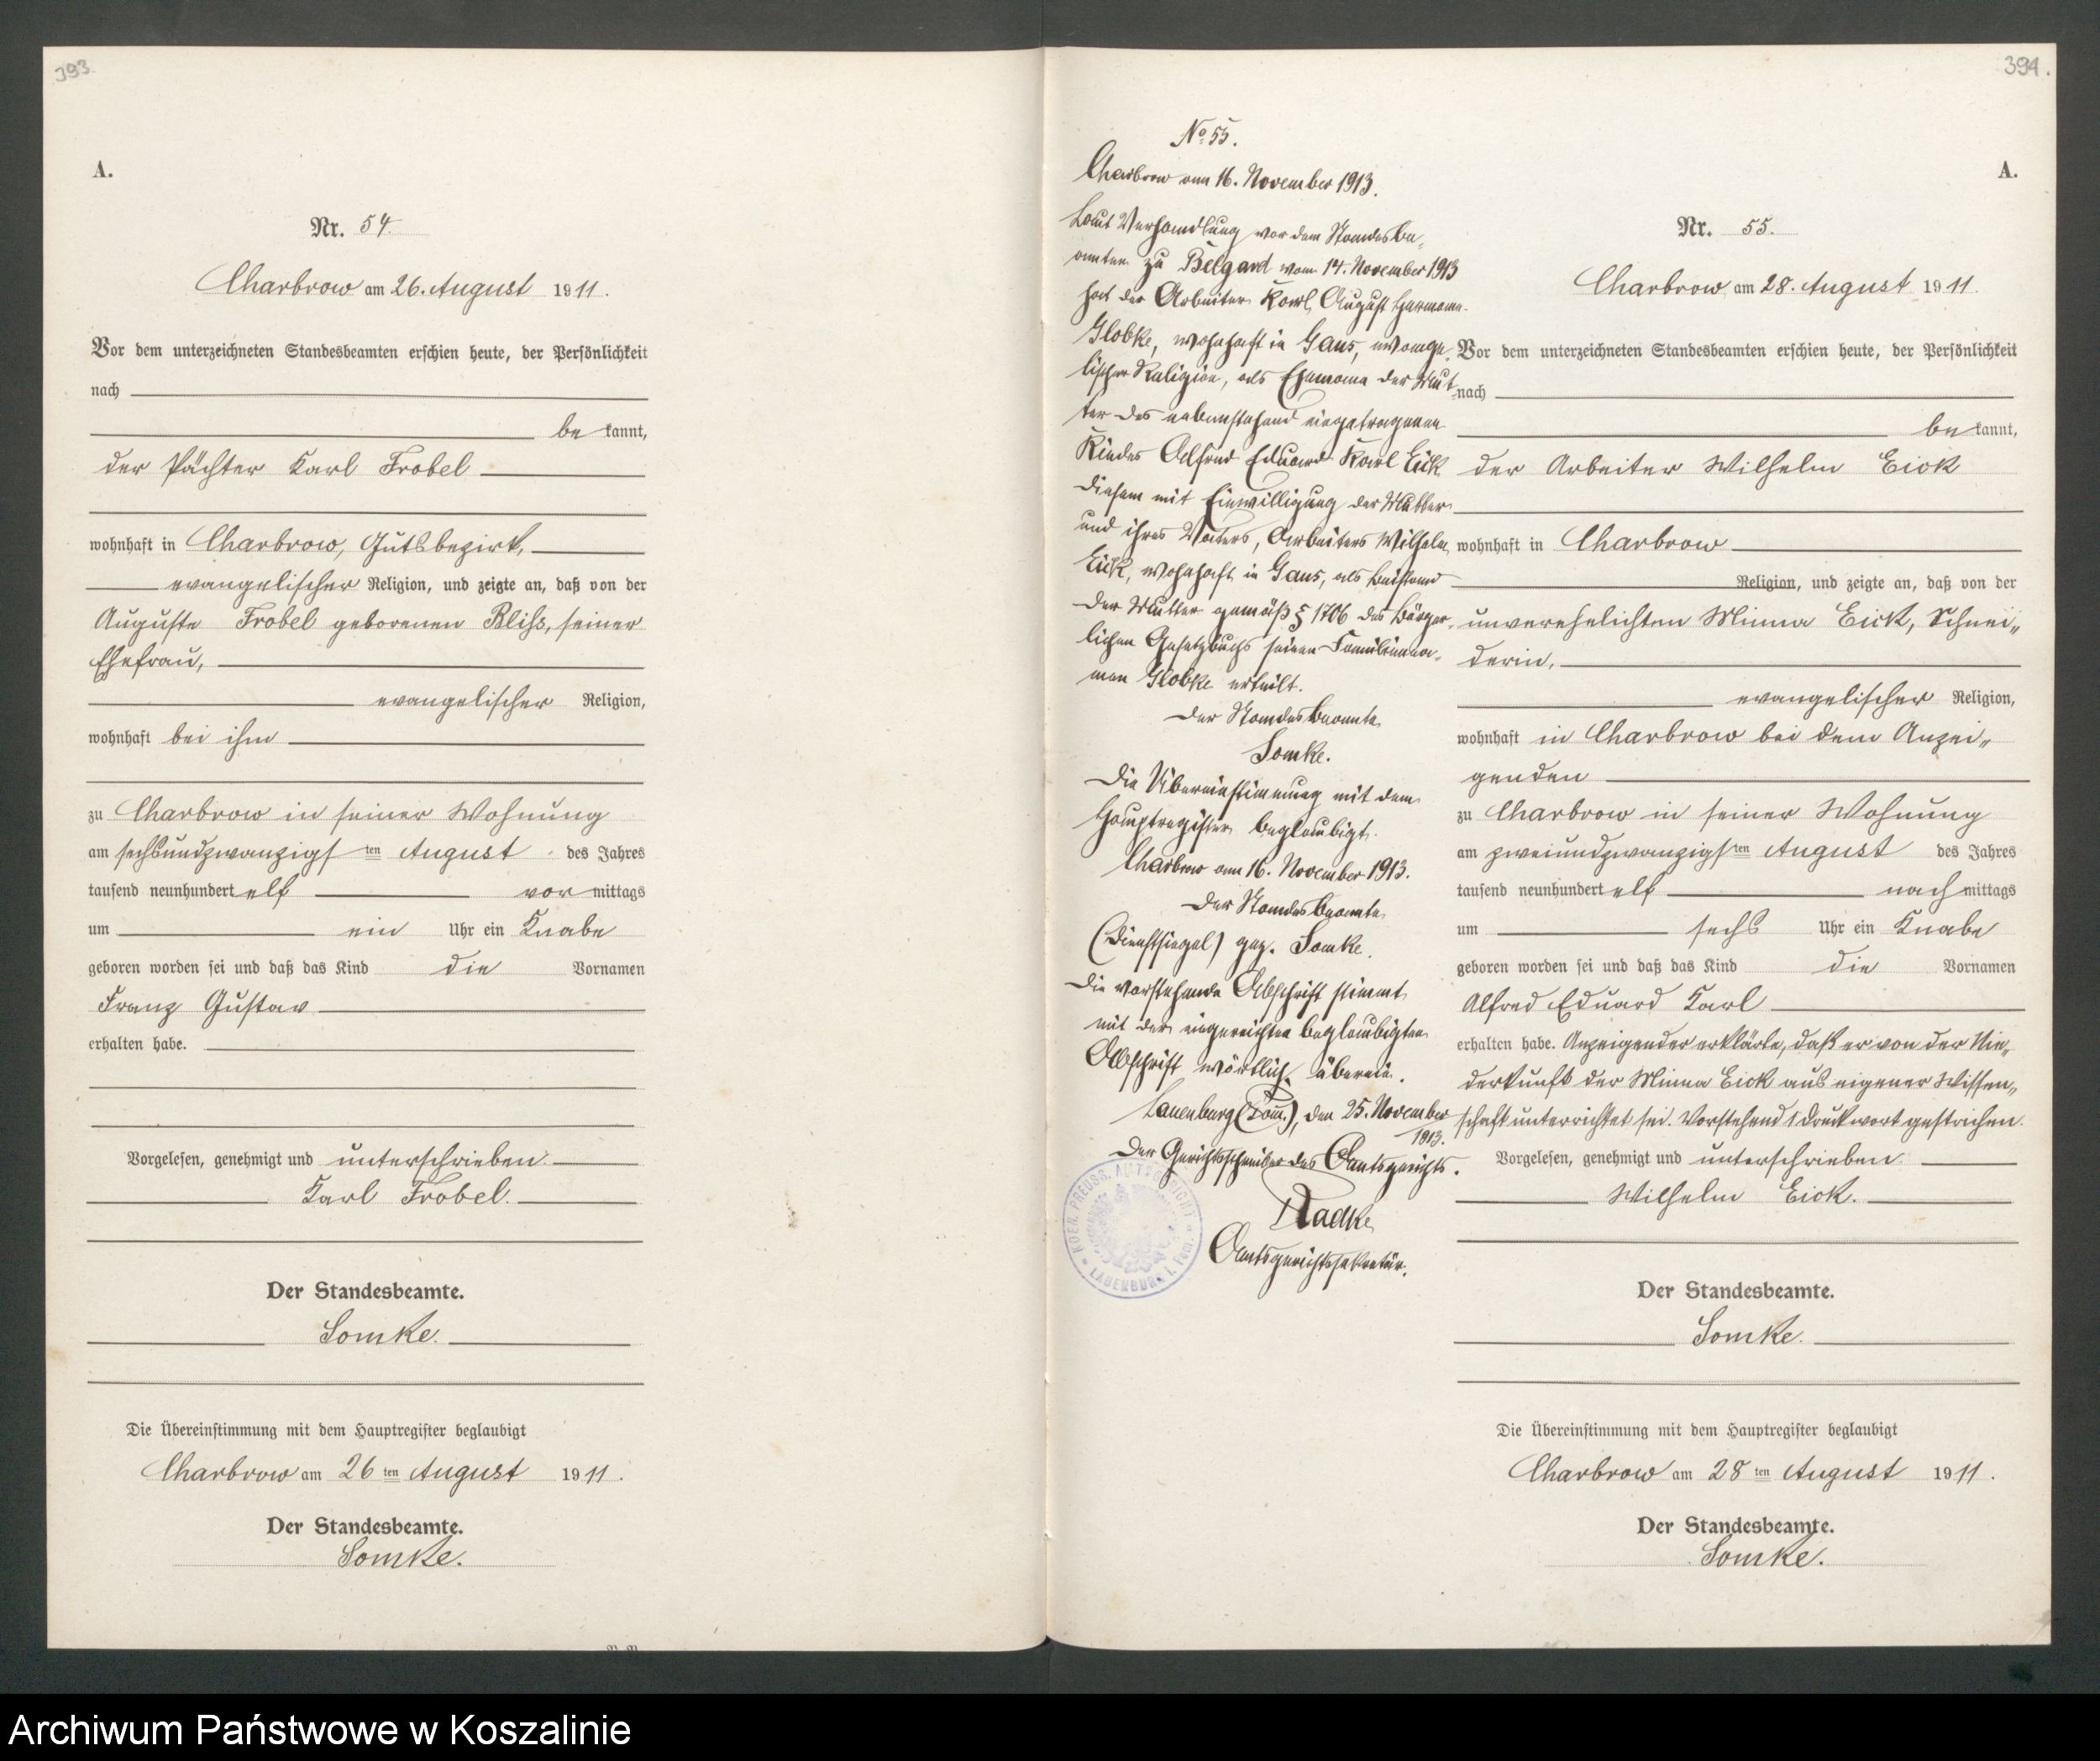 393.
A.
Nr. 54.
Charbrow am 26. August 1911.
Vor dem unterzeichneten Standesbeamten erschien heute, der Persönlichkeit
nach
be kannt,
der Pächter Karl Frobel
wohnhaft in Charbrow, Gutsbezirk,
evangelischer Religion, und zeigte an, daß von der
Auguste Frobel geborenen Bliß, seiner
Ehefrau,
evangelischer Religion,
wohnhaft bei ihm
zu Charbrow in seiner Wohnung
am sechsundzwanzigsten August des Jahres
tausend neunhundert elf vor mittags
um ein Uhr ein Knabe
geboren worden sei und daß das Kind die Vornamen
Franz Gustav
erhalten habe.
Vorgelesen, genehmigt und unterschrieben.
Karl Frobel.
Der Standesbeamte.
Somke.
Die Übereinstimmung mit dem Hauptregister beglaubigt
Charbrow am 26 ten August 1911.
Der Standesbeamte.
Somke.
394.
No 55.
Charbrow am 16. November 1913.
Laut Verhandlung vor dem Standesbe-
amten zu Belgard vom 14. November 1913
hat der Arbeiter Karl August Hermann
Globke, wohnhaft in Gans, evange-
lischer Religion, als Ehemann der Mut-
ter des nebenstehend eingetragenen
Kindes Alfred Eduard Karl Eick
diesem mit Einwilligung der Mutter
und ihres Vaters, Arbeiters Wilhelm
Eick, wohnhaft in Gans, als Beistand
der Mutter gemäß § 1706 des Bürger-
lichen Gesetzbuchs seinen Familienna-
men Globke erteilt.
Der Standesbeamte
Somke.
Die Übereinstimmung mit dem
Hauptregister beglaubigt.
Charbrow am 16. November 1913.
Der Standesbeamte
(Dienstsiegel) gez. Somke.
Die vorstehende Abschrift stimmt
mit der eingereichten beglaubigten
Abschrift wörtlich überein.
Lauenburg (Pom.), den 25. November
1913.
Der Gerichtsschreiber des Amtsgerichts.
Radke
Amtsgerichtssekretär.
KOEN. PREUSS. AMTSGERICHT
LAUENBURG i. Pom.
A.
Nr. 55.
Charbrow am 28. August 1911.
Vor dem unterzeichneten Standesbeamten erschien heute, der Persönlichkeit
nach
be kannt,
der Arbeiter Wilhelm Eick
wohnhaft in Charbrow
Religion, und zeigte an, daß von der
unverehelichten Minna Eick, Schnei-
derin,
evangelischer Religion,
wohnhaft in Charbrow bei dem Anzei-
genden
zu Charbrow in seiner Wohnung
am zweiundzwanzigsten August des Jahres
tausend neunhundert elf nach mittags
um sechs Uhr ein Knabe
geboren worden sei und daß das Kind die Vornamen
Alfred Eduard Karl
erhalten habe. Anzeigender erklärte, daß er von der Nie-
derkunft der Minna Eick aus eigener Wissen-
schaft unterrichtet sei. Vorstehend 1 Druckwort gestrichen.
Vorgelesen, genehmigt und unterschrieben.
Wilhelm Eick.
Der Standesbeamte.
Somke.
Die Übereinstimmung mit dem Hauptregister beglaubigt
Charbrow am 28 ten August 1911.
Der Standesbeamte.
Somke.
Archiwum Państwowe w Koszalinie